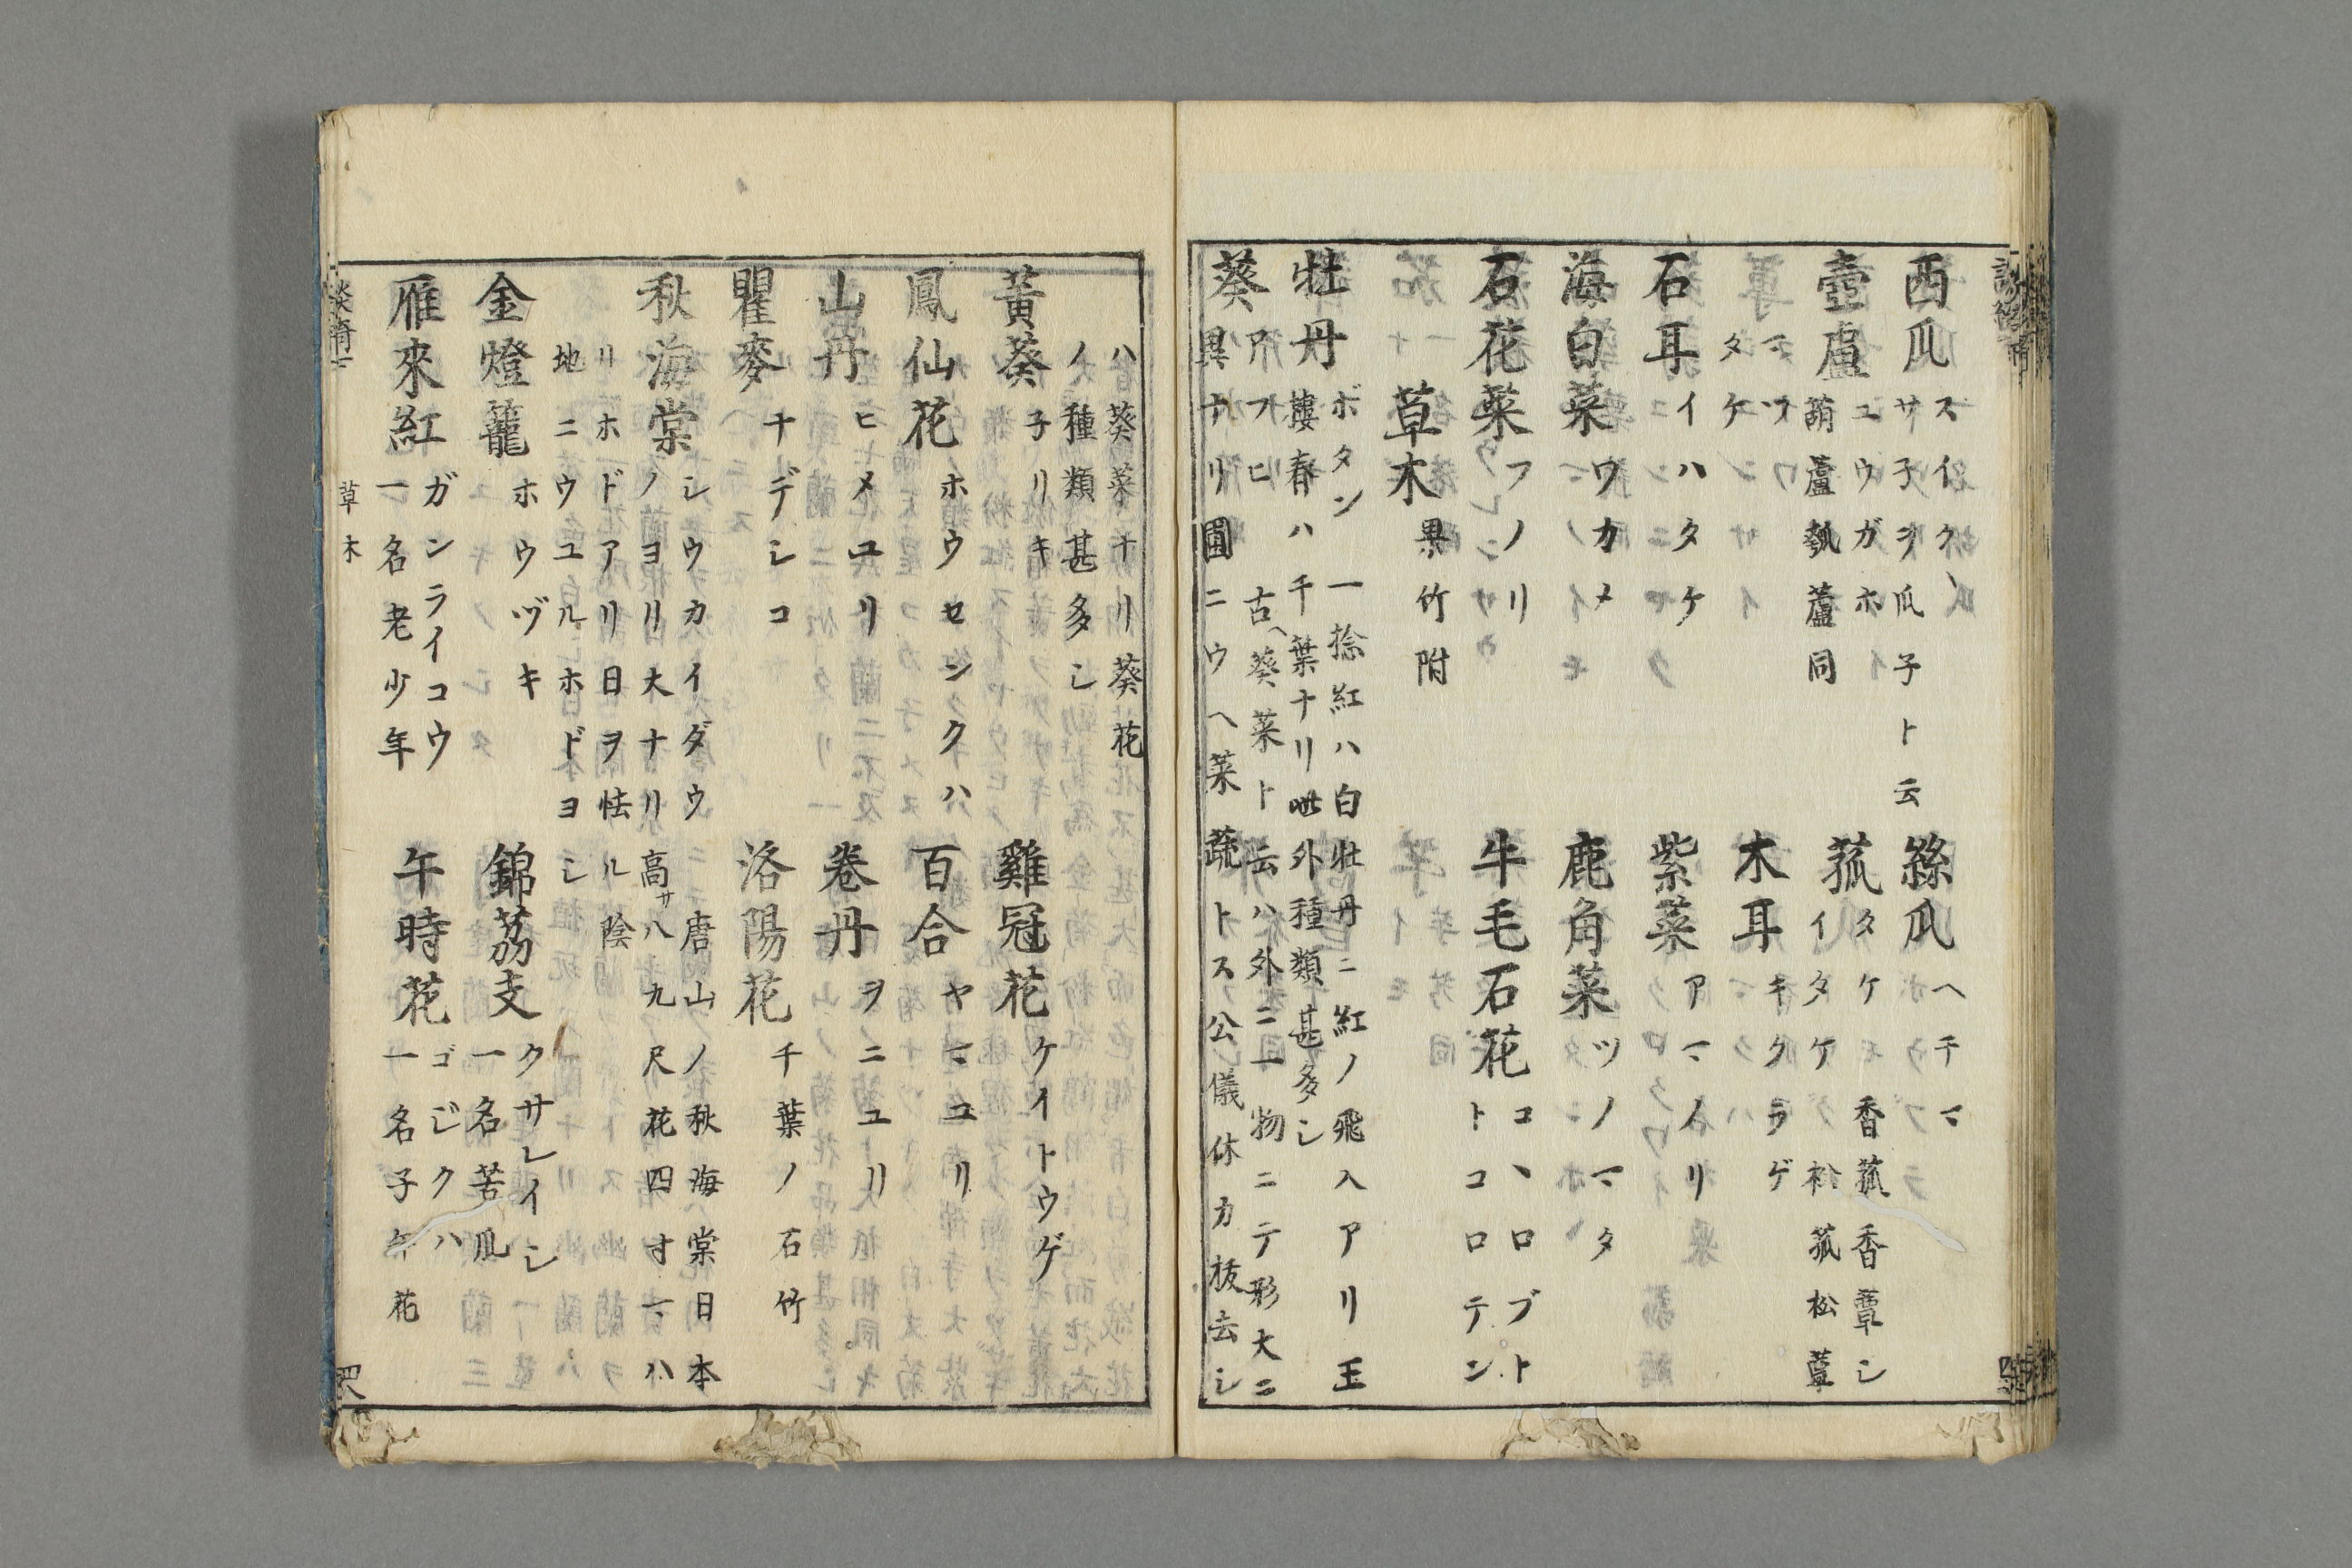 西瓜 スイクハ
サ子ヲ瓜子ト云
絲瓜 ヘチマ
壺盧 ユウガホ
葫蘆瓠蘆同
菰 タケ 香菰香蕈シ
イタケ 松菰松蕈
マツ
タケ
木耳 キクラゲ
石耳 イハタケ
紫菜 アマノリ
海白菜 ワカメ
鹿角菜 ツノマタ
石花菜 フノリ
牛毛石花 コヽロブト
トコロテン
草木 果竹附
牡丹 ボタン 一捻紅ハ白牡丹ニ紅ノ飛入アリ玉
樓春ハ千葉ナリ此外種類甚多シ
葵 アフヒ 古ヘ葵菜ト云ハ外ニ一物ニテ形大ニ
異ナリ圃ニウヘ菜蔬トス公儀休カ抜去シ
ハ葵菜ナリ葵花
ノ種類甚多シ
黃葵 子リキ
雞冠花 ケイトウゲ
鳳仙花 ホウセンクハ
百合 ヤマユリ
山丹 ヒメユリ
卷丹 ヲニユリ
瞿麥 ナデシコ
洛陽花 千葉ノ石竹
秋海棠 シウカイダウ 唐山ノ秋海棠日本
ノヨリ大ナリ高サ八九尺花四寸マハ
リホドアリ日ヲ怯ル陰
地ニウユルホドヨシ
金燈籠 ホウヅキ
錦茘支 クサレイシ
一名苦瓜
雁來紅 ガンライコウ
一名老少年
午時花 ゴジクハ
一名子午花
草木
四八